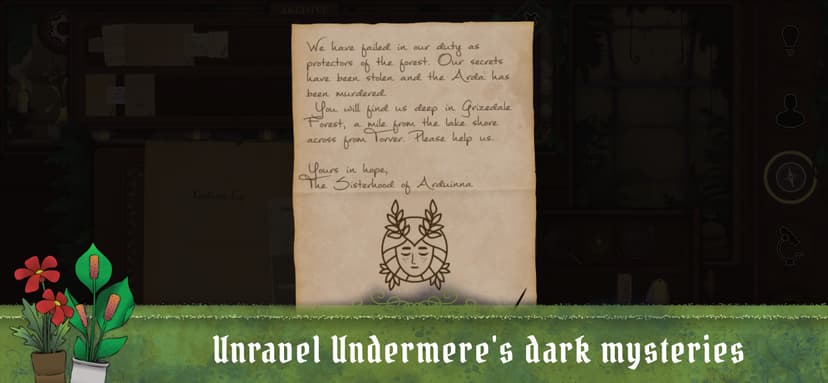 ARCHIVE
We have failed in our duty as
protectors of the forest. Our secrets
have been stolen and the Arda has
been murdered.
You will find us deep in Grizedale
Forest, a mile from the lake shore
across from Torver. Please help us.
Yours in hope,
The Sisterhood of Arduinna
Unravel Undermere's dark mysteries